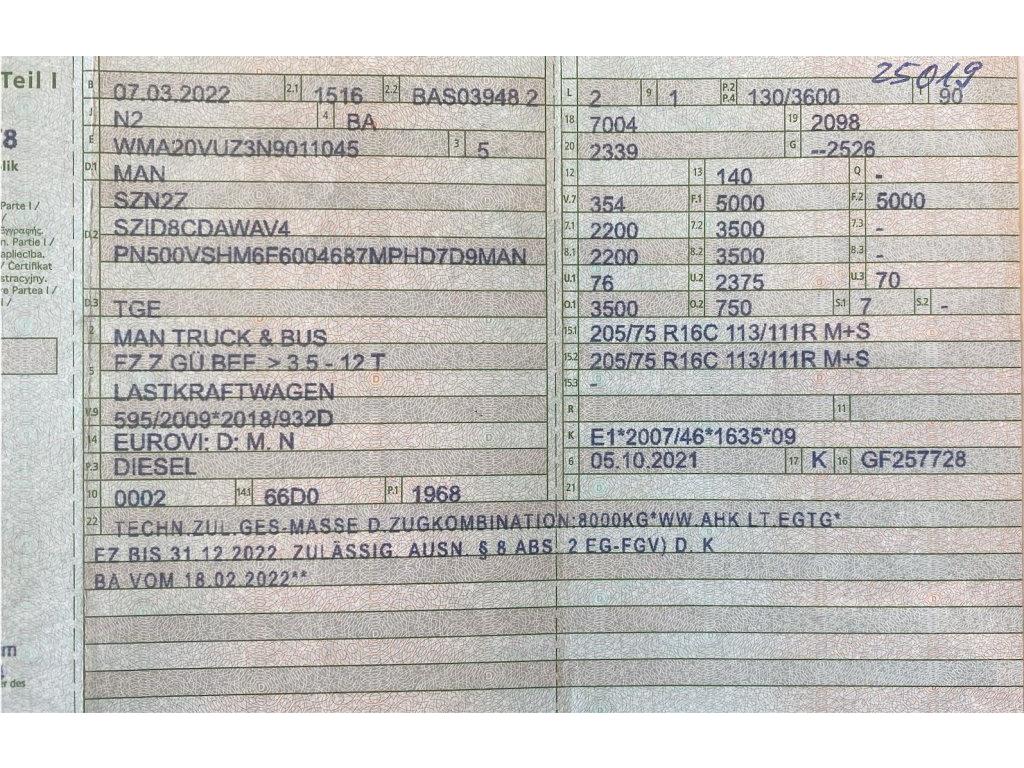 Teil I
8
lik
Parte I /
/
Εγγραφής.
n. Partie I /
apliecība.
/ Certifikat
stracyjny.
re Partea I /
I /
m
er des
B 07.03.2022 2.1 1516 2.2 BAS03948 2
J N2 4 BA
E WMA20VUZ3N9011045 3 5
D.1 MAN
SZN2Z
D.2 SZID8CDAWAV4
PN500VSHM6F6004687MPHD7D9MAN
D.3 TGE
2 MAN TRUCK & BUS
5 FZ.Z.GÜ.BEF. > 3,5 - 12 T
LASTKRAFTWAGEN
V.9 595/2009*2018/932D
14 EUROVI; D; M, N
P.3 DIESEL
10 0002 14.1 66D0 P.1 1968
25019
L 2 9 1 P.2 P.4 130/3600 90
18 7004 19 2098
20 2339 G --2526
12 13 140 Q -
V.7 354 F.1 5000 F.2 5000
7.1 2200 7.2 3500 7.3 -
8.1 2200 8.2 3500 8.3 -
U.1 76 U.2 2375 U.3 70
O.1 3500 O.2 750 S.1 7 S.2 -
15.1 205/75 R16C 113/111R M+S
15.2 205/75 R16C 113/111R M+S
15.3 -
R 11
K E1*2007/46*1635*09
6 05.10.2021 17 K 16 GF257728
21
22 TECHN.ZUL.GES-MASSE D.ZUGKOMBINATION:8000KG*WW.AHK LT.EGTG*
EZ BIS 31.12.2022. ZULÄSSIG. AUSN. § 8 ABS. 2 EG-FGV) D. K
BA VOM 18.02.2022**